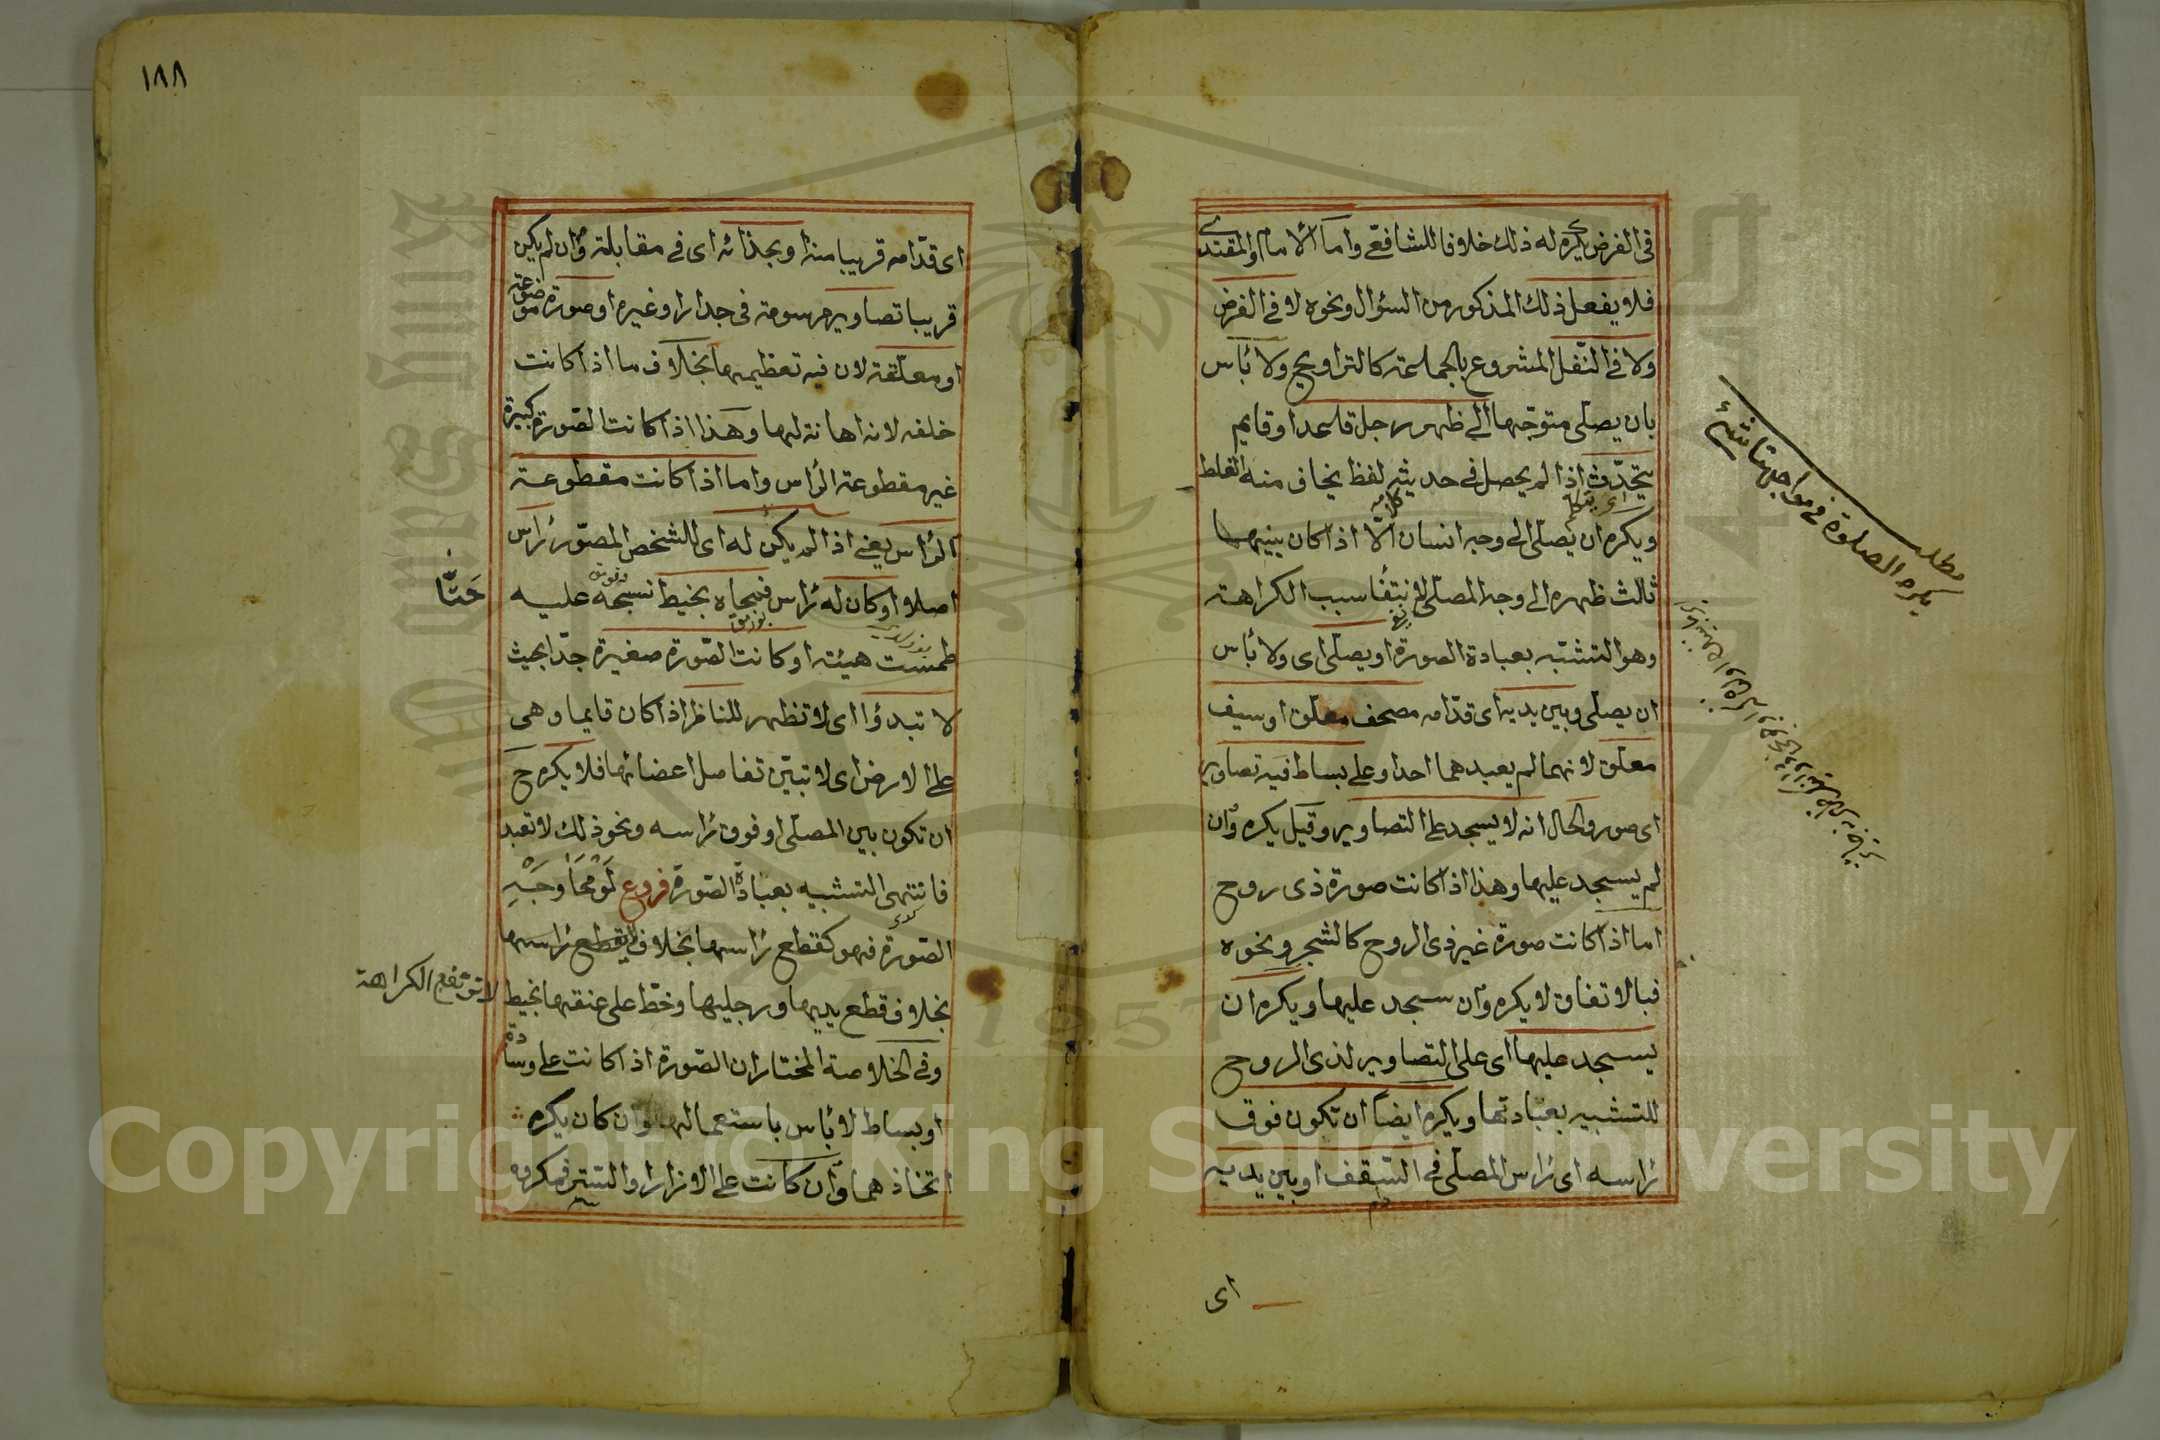 فى الفرض يكره له ذلك خلافا للشافعى واما الامام والمقتدى
فلا يفعل ذلك المذكور من السؤال ونحوه لا فى الفرض
ولا فى النفل المشروع بالجماعة كالتراويح ولا بأس
بان يصلى متوجها الى ظهر رجل قاعدا وقايم
يتحدث اذا لم يحصل فى حديثه لفظ يخاف منه الغلط
ويكره ان يصلى الى وجه انسان الا اذا كان بينهما
ثالث ظهره الى وجه المصلى لانتفاء سبب الكراهة
وهو التشبه بعبادة الصورة او يصلى اى ولا بأس
ان يصلى وبين يديه اى قدامه مصحف معلق او سيف
معلق لانهما لم يعبدهما احد او على بساط فيه تصاوير
اى صور والحال انه لا يسجد على التصاوير وقيل يكره وان
لم يسجد عليها وهذا اذا كانت صورة ذى روح
اما اذا كانت صورة غير ذى الروح كالشجر ونحوه
فبالاتفاق لا يكره وان سجد عليها ويكره ان
يسجد عليها اى على التصاوير لذى الروح
للتشبيه بعبادتها ويكره ايضا ان تكون فوق
رأسه اى رأس المصلى فى السقف او بين يديه
اى
مطلب
يكره الصلوة فى مواجهة
١٨٨
اى قدامه قريبا منه او بحذائه اى فى مقابلته وان لم يكن
قريبا تصاوير مرسومة فى جدار او غيره او صورة موضوعة
او معلقة لان فيه تعظيمها بخلاف ما اذا كانت
خلفه لانه اهانة لها وهذا اذا كانت الصورة كبيرة
غير مقطوعة الرأس واما اذا كانت مقطوعة
الرأس يعنى اذا لم يكن له اى للشخص المصور رأس
اصلا او كان له رأس فمحاه بخيط نسجه عليه
حتى
طمست هيئته او كانت الصورة صغيرة جدا بحيث
لا تبدوا اى لا تظهر للناظر اذا كان قايما وهى
على الارض اى لا تتبين تفاصل اعضائها فلا يكره ح
ان تكون بين المصلى او فوق رأسه ونحو ذلك لا تعبد
فانتهى التشبيه بعبادة الصورة فروع لو محا وجه
الصورة فهو كقطع رأسها بخلاف قطع رأسها
بخلاف قطع يديها ورجليها وخط على عنقها بخيط
لا ترتفع الكراهة
وفى الخلاصة المختار ان الصورة اذا كانت على وسادة
او بساط لا بأس باستعمالها وان كان يكره
اتخاذهما وان كانت على الازار او الستر فمكروه
Copyright © King Saud University
1957